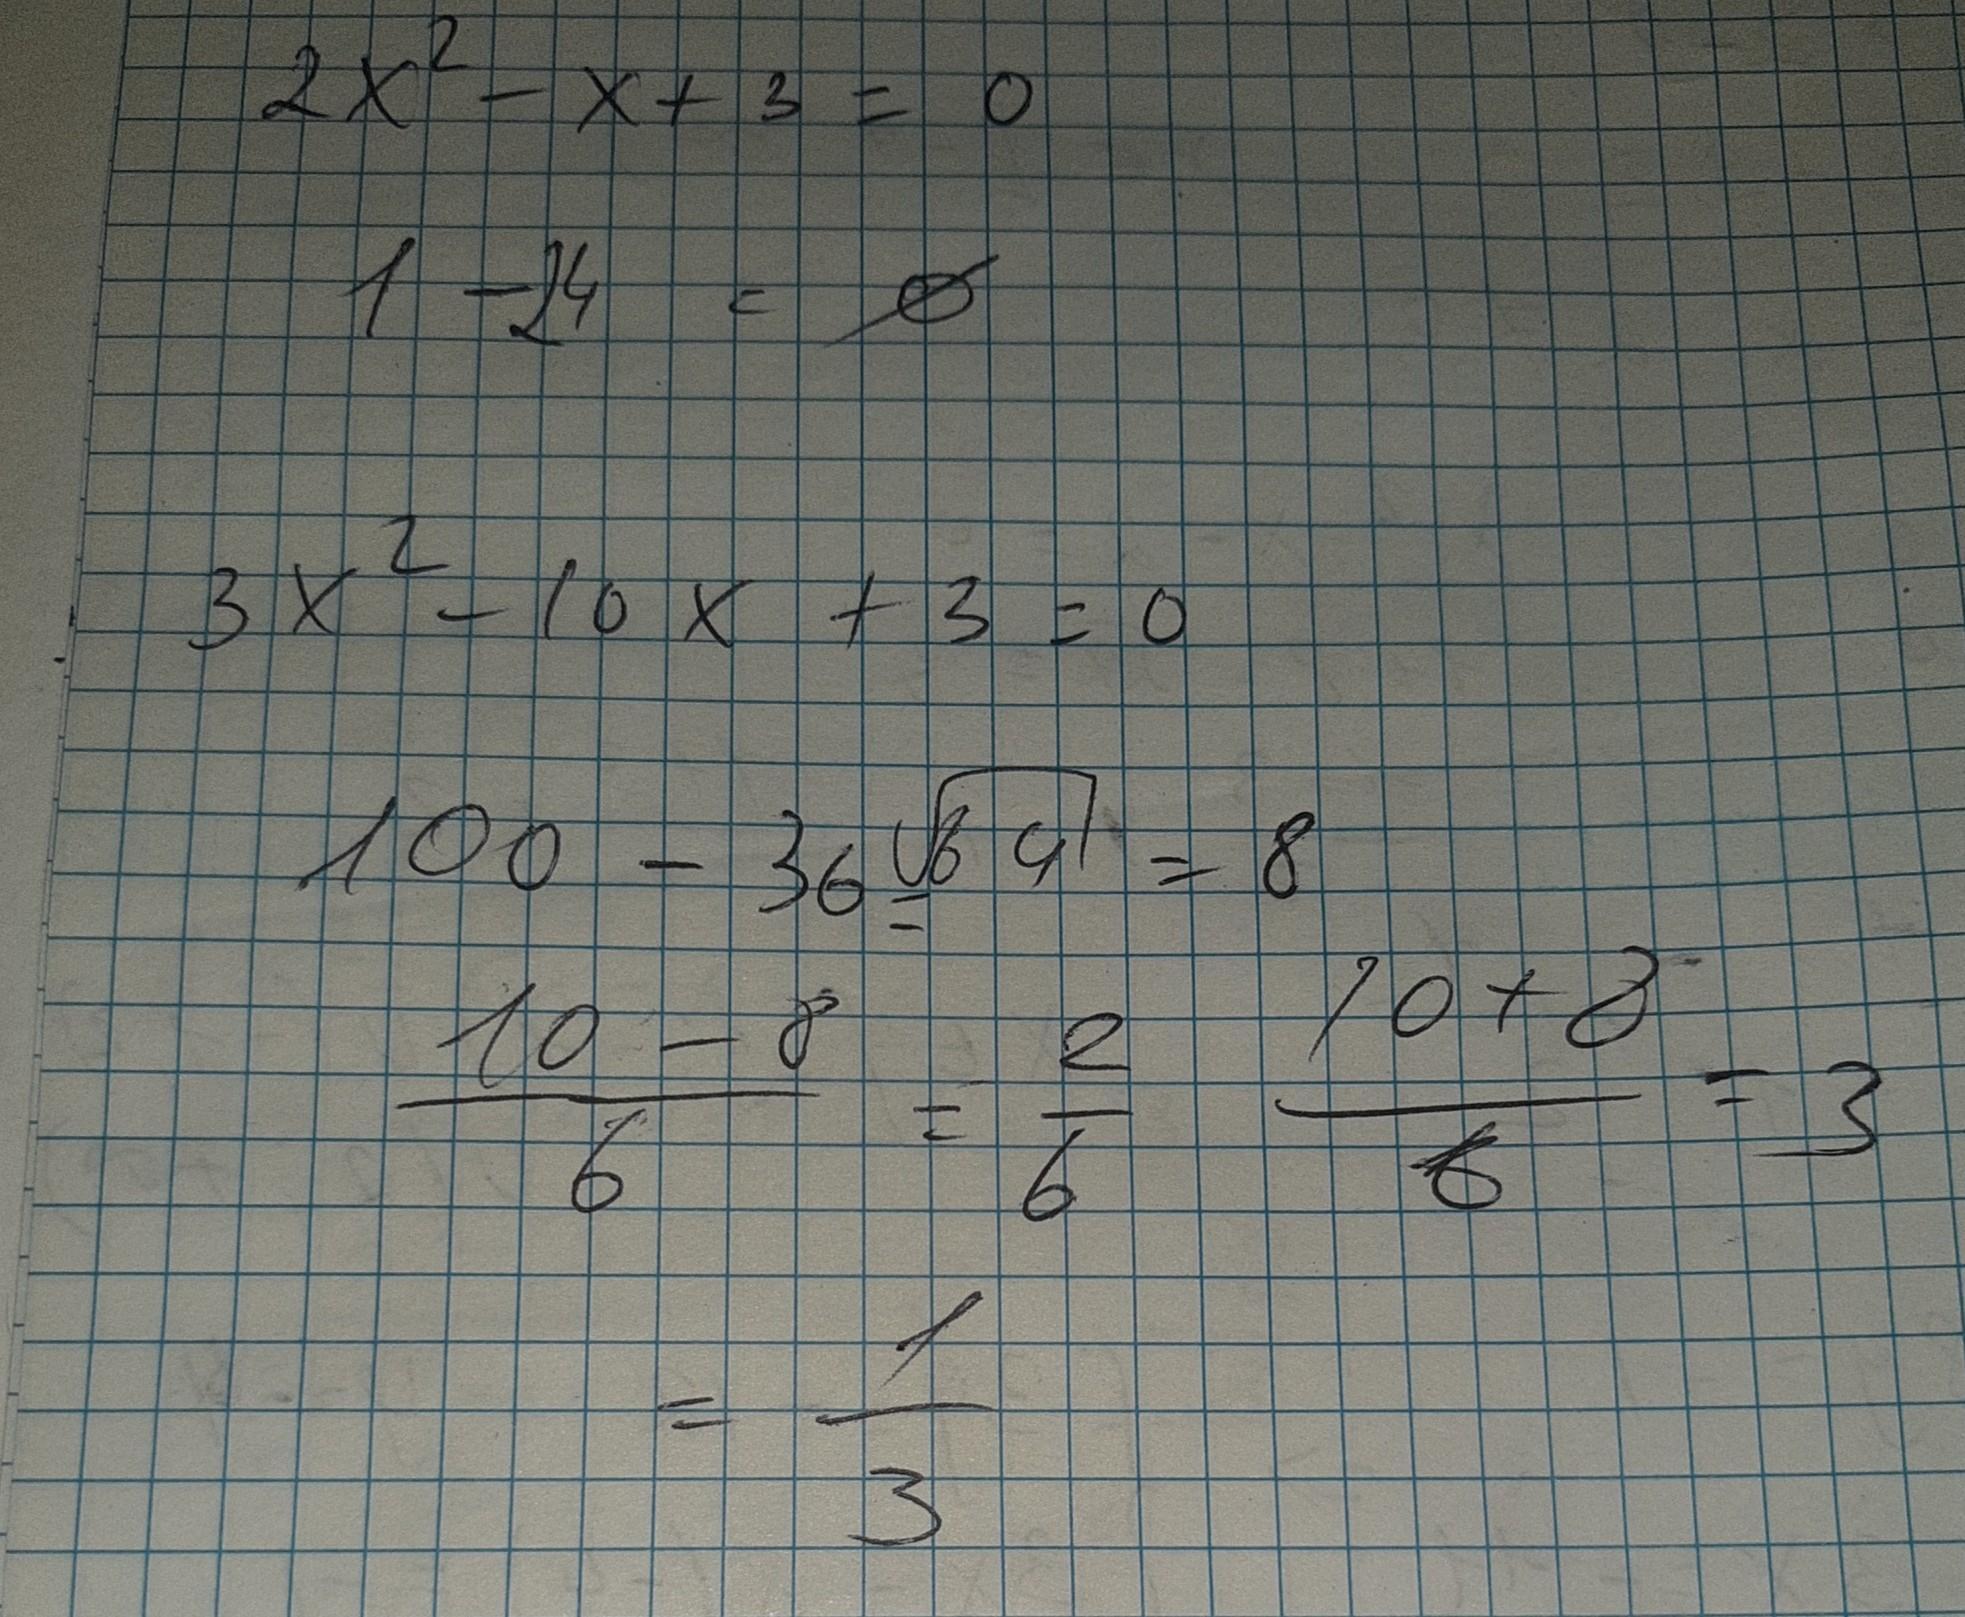 2x² - x + 3 = 0
1 - 24 = ∅
3x² - 10x + 3 = 0
100 - 36 = √64 = 8
(10 - 8)/6 = 2/6 (10 + 8)/6 = 3
= 1/3